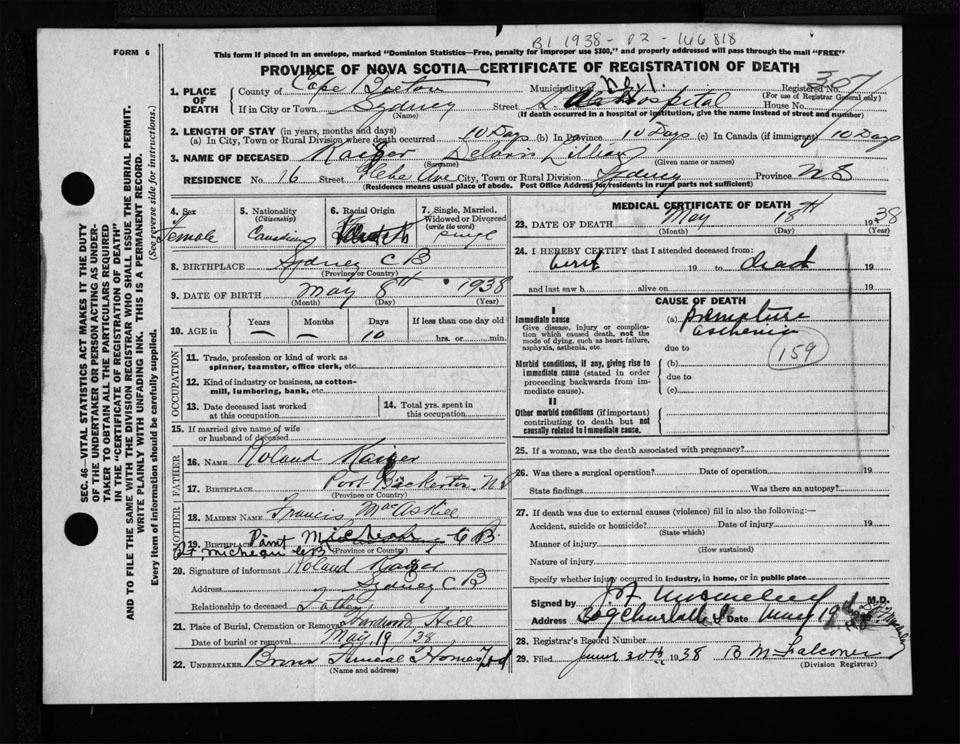 B1 1938 - P2 - 166818
FORM 6
This form if placed in an envelope, marked "Dominion Statistics—Free, penalty for improper use $300," and properly addressed will pass through the mail "FREE"
PROVINCE OF NOVA SCOTIA—CERTIFICATE OF REGISTRATION OF DEATH
1. PLACE OF DEATH
County of Cape Breton Municipality of
Registered No. 307
(For use of Registrar General only)
If in City or Town Sydney Street Hospital House No.
(Name) (If death occurred in a hospital or institution, give the name instead of street and number)
2. LENGTH OF STAY (in years, months and days)
(a) In City, Town or Rural Division where death occurred 10 Days (b) In Province 10 Days (c) In Canada (if immigrant) 10 Days
3. NAME OF DECEASED Kaizer Lillian
(Surname) (Given name or names)
RESIDENCE No. 16 Street Glebe Ave City, Town or Rural Division Sydney Province N S
(Residence means usual place of abode. Post Office Address for residents in rural parts not sufficient)
4. Sex Female
5. Nationality (Citizenship) Canadian
6. Racial Origin
7. Single, Married, Widowed or Divorced (write the word) single
8. BIRTHPLACE Sydney C B
(Province or Country)
9. DATE OF BIRTH May 8th 1938
(Month) (Day) (Year)
10. AGE in Years — Months — Days 10 If less than one day old
hrs. or min.
OCCUPATION
11. Trade, profession or kind of work as spinner, teamster, office clerk, etc.
12. Kind of industry or business, as cotton-mill, lumbering, bank, etc.
13. Date deceased last worked at this occupation
14. Total yrs. spent in this occupation
15. If married give name of wife or husband of deceased
FATHER
16. NAME Roland Kaizer
17. BIRTHPLACE Port N S
(Province or Country)
MOTHER
18. MAIDEN NAME Francis MacAskill
19. BIRTHPLACE Point C B
(Province or Country)
20. Signature of informant Roland Kaizer
Address Sydney C B
Relationship to deceased Father
21. Place of Burial, Cremation or Removal Hardwood Hill
Date of burial or removal May 19 /38
22. UNDERTAKER Funeral Home Ltd
(Name and address)
MEDICAL CERTIFICATE OF DEATH
23. DATE OF DEATH May 18th 1938
(Month) (Day) (Year)
24. I HEREBY CERTIFY that I attended deceased from:
birth 19 to death 19
and last saw h alive on 19
CAUSE OF DEATH
I
Immediate cause
Give disease, injury or complication which caused death, not the mode of dying, such as heart failure, asphyxia, asthenia, etc.
(a) premature
asthenia
due to
159
Morbid conditions, if any, giving rise to immediate cause (stated in order proceeding backwards from immediate cause).
(b)
due to
(c)
II
Other morbid conditions (if important) contributing to death but not causally related to immediate cause.
25. If a woman, was the death associated with pregnancy?
26. Was there a surgical operation? Date of operation 19
State findings Was there an autopsy?
27. If death was due to external causes (violence) fill in also the following:—
Accident, suicide or homicide? Date of injury 19
(State which)
Manner of injury
(How sustained)
Nature of injury
Specify whether injury occurred in industry, in home, or in public place
Signed by M.D.
Address Charlotte St Date May 19
28. Registrar's Record Number
29. Filed June 30th 1938 B M Falconer
(Division Registrar)
SEC. 46—VITAL STATISTICS ACT MAKES IT THE DUTY
OF THE UNDERTAKER OR PERSON ACTING AS UNDER-
TAKER TO OBTAIN ALL THE PARTICULARS REQUIRED
IN THE "CERTIFICATE OF REGISTRATION OF DEATH"
AND TO FILE THE SAME WITH THE DIVISION REGISTRAR WHO SHALL ISSUE THE BURIAL PERMIT.
WRITE PLAINLY WITH UNFADING INK. THIS IS A PERMANENT RECORD.
Every item of information should be carefully supplied. (See reverse side for instructions.)